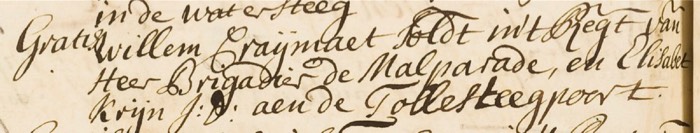 in de watersteeg
Gratis Willem Craijmaet Soldt in't Regt van
Heer Brigadier de Malparade, en Elisabet
Krijn J: D: aen de Tollesteegpoort.